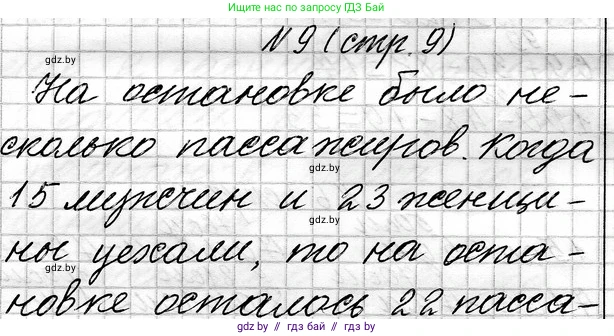 Ищите нас по запросу ГДЗ Бай
N 9 (стр. 9)
gdz.by
На остановке было не-
сколько пассажиров. Когда
gdz.by
15 мужчин и 23 женщи-
gdz.by
ны уехали, то на оста-
gdz.by
новке осталось 22 пасса-
gdz.by // гдз бай // gdz by